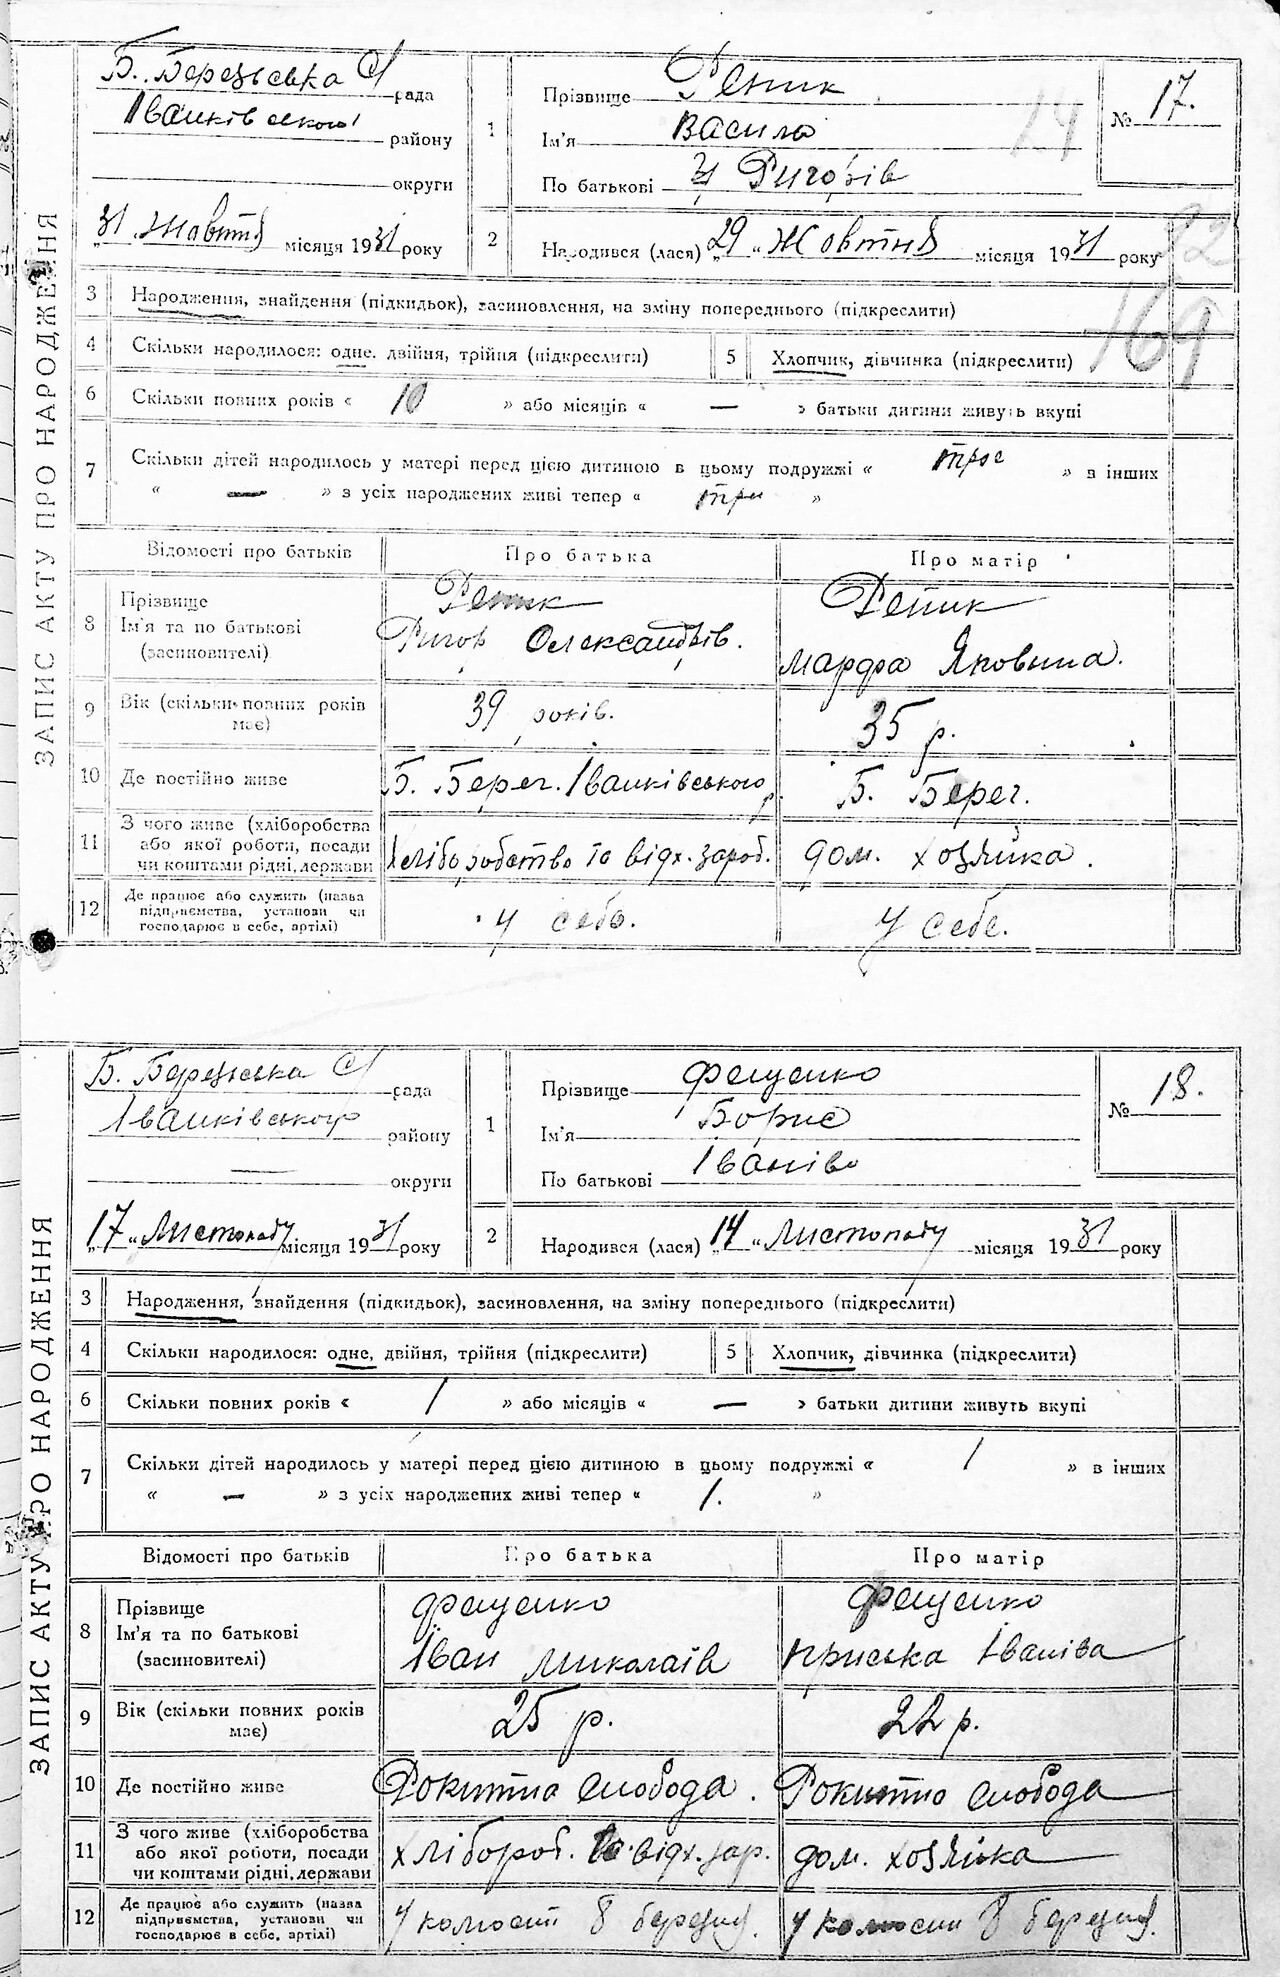 ЗАПИС АКТУ ПРО НАРОДЖЕННЯ
Б. Березьська С/ рада
Іванківського району
округи
„31 Жовтня місяця 1931 року
1
Прізвище Репик
Ім'я Василь
По батькові Ригорів
№ 17.
24
2
Народився (лася) „29 “ Жовтня місяця 1931 року
169
3 Народження, знайдення (підкидьок), засиновлення, на зміну попереднього (підкреслити)
4 Скільки народилося: одне, двійня, трійня (підкреслити) 5 Хлопчик, дівчинка (підкреслити)
6 Скільки повних років « 10 » або місяців « — » батьки дитини живуть вкупі
7 Скільки дітей народилось у матері перед цією дитиною в цьому подружжі « троє » в інших
« — » з усіх народжених живі тепер « три »
Відомості про батьків Про батька Про матір
8 Прізвище Репик Репик
Ім'я та по батькові Ригор Олександрів. Марфа Яковина.
(засиновителі)
9 Вік (скільки повних років має) 39 років. 35 р.
10 Де постійно живе Б. Берег. Іванківського р. Б. Берег.
11 З чого живе (хліборобства
або якої роботи, посади
чи коштами рідні, держави Хліборобство то відх. зароб. дом. хозяйка.
12 Де працює або служить (назва
підприємства, установи чи
господарює в себе, артілі) у себе. у себе.
ЗАПИС АКТУ ПРО НАРОДЖЕННЯ
Б. Березьська С/ рада
Іванківського району
— округи
„17 “ Листопаду місяця 1931 року
1
Прізвище Фещенко
Ім'я Борис
По батькові Іванів
№ 18.
2
Народився (лася) „14 “ Листопаду місяця 1931 року
3 Народження, знайдення (підкидьок), засиновлення, на зміну попереднього (підкреслити)
4 Скільки народилося: одне, двійня, трійня (підкреслити) 5 Хлопчик, дівчинка (підкреслити)
6 Скільки повних років « 1 » або місяців « — » батьки дитини живуть вкупі
7 Скільки дітей народилось у матері перед цією дитиною в цьому подружжі « 1 » в інших
« — » з усіх народжених живі тепер « 1. »
Відомості про батьків Про батька Про матір
8 Прізвище Фещенко Фещенко
Ім'я та по батькові Іван Миколаїв Приська Іваніва
(засиновителі)
9 Вік (скільки повних років має) 25 р. 22 р.
10 Де постійно живе Рокитна Слобода. Рокитно Слобода
11 З чого живе (хліборобства
або якої роботи, посади
чи коштами рідні, держави Хлібороб. то відх. зар. дом. хозяйка
12 Де працює або служить (назва
підприємства, установи чи
господарює в себе, артілі) у колгоспі 8 березня. у колгоспи 8 березня.